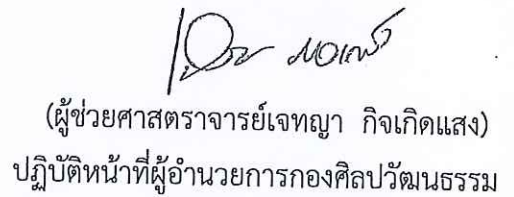 (ผู้ช่วยศาสตราจารย์เจทญา  กิจเกิดแสง)
ปฏิบัติหน้าที่ผู้อำนวยการกองศิลปวัฒนธรรม